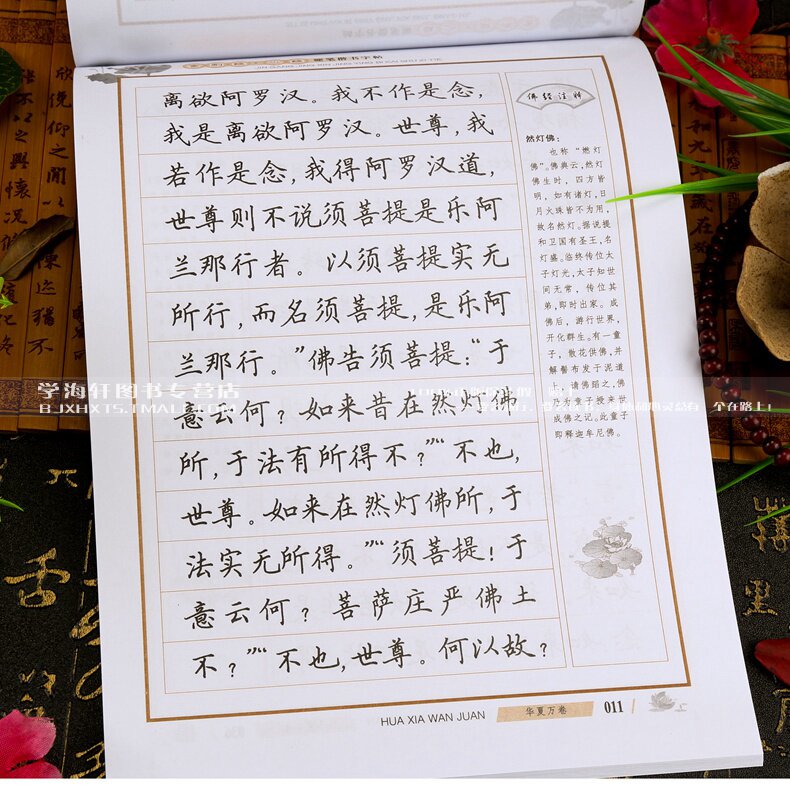 硬笔楷书字帖
离欲阿罗汉。我不作是念，
我是离欲阿罗汉。世尊，我
若作是念，我得阿罗汉道，
世尊则不说须菩提是乐阿
兰那行者。以须菩提实无
所行，而名须菩提，是乐阿
兰那行。”佛告须菩提：“于
意云何？如来昔在然灯佛
所，于法有所得不？”“不也，
世尊。如来在然灯佛所，于
法实无所得。”“须菩提！于
意云何？菩萨庄严佛土
不？”“不也，世尊。何以故？
佛经注释
然灯佛：
也称“燃灯
佛”。佛典云，然灯
佛生时，四方皆
明，如有诸灯，日
月火珠皆不为用，
故名然灯。据说提
和卫国有圣王，名
灯盛。临终传位太
子灯光，太子知世
间无常，传位其
弟，即时出家。成
佛后，游行世界，
开化群生。有一童
子，散花供佛，并
解髻布发于泥道
中，请佛蹈之，佛
即为童子授来世
成佛之记。此童子
即释迦牟尼佛。
学海轩图书专营店
BJXHXTS.TMALL.COM
HUA XIA WAN JUAN
华夏万卷
011